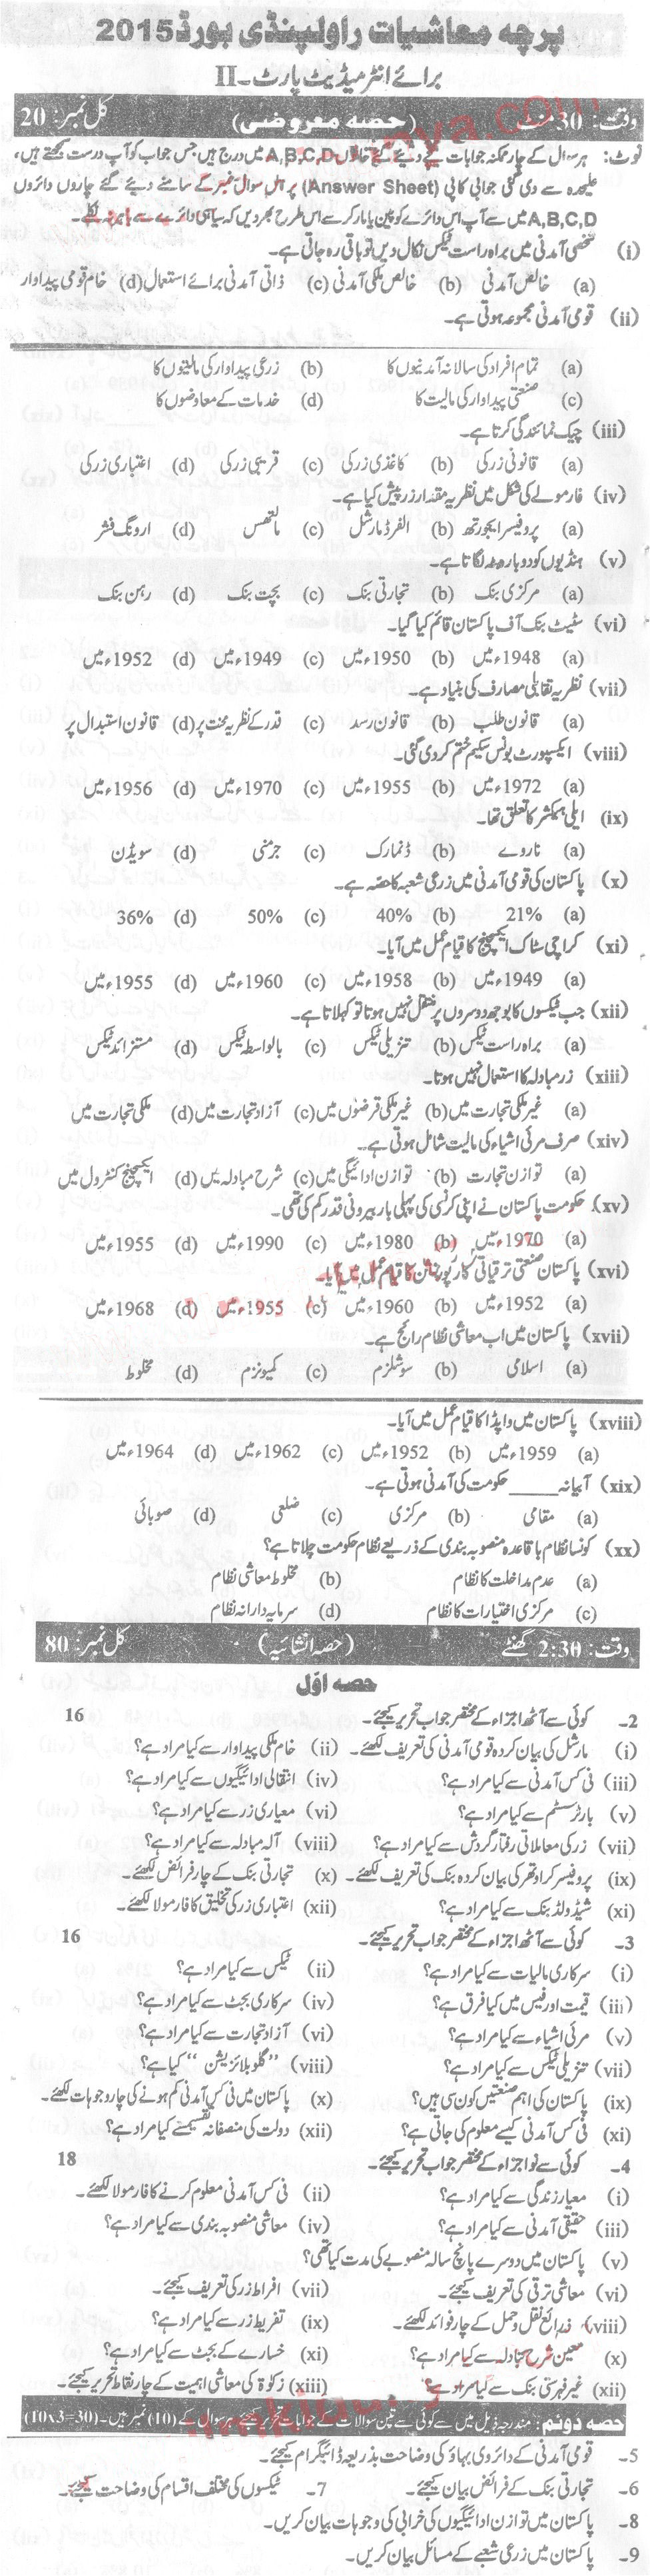 پرچہ معاشیات راولپنڈی بورڈ 2015
برائے انٹرمیڈیٹ پارٹ۔ II
وقت: 30 منٹ (حصہ معروضی) کل نمبر: 20
نوٹ: ہر سوال کے چار ممکنہ جوابات A,B,C,D میں درج ہیں جس جواب کو آپ درست سمجھتے ہیں،
علیحدہ سے دی گئی جوابی کاپی (Answer Sheet) پر اس سوال نمبر کے سامنے دیئے گئے چاروں دائروں
A,B,C,D میں سے آپ اس دائرے کو پین یا مارکر سے اس طرح بھر دیں کہ سیاہی دائرے سے باہر نہ نکلے۔
(i) شخصی آمدنی میں براہ راست ٹیکس نکال دیں تو باقی رہ جاتی ہے۔
(a) خالص آمدنی (b) خالص ملکی آمدنی (c) ذاتی آمدنی برائے استعمال (d) خام قومی پیداوار
(ii) قومی آمدنی مجموعہ ہوتی ہے۔
(a) تمام افراد کی سالانہ آمدنیوں کا (b) زرعی پیداوار کی مالیتوں کا
(c) صنعتی پیداوار کی مالیت کا (d) خدمات کے معاوضوں کا
(iii) چیک نمائندگی کرتا ہے۔
(a) قانونی زر کی (b) کاغذی زر کی (c) قریبی زر کی (d) اعتباری زر کی
(iv) فارمولے کی شکل میں نظریہ مقدار زر پیش کیا ہے۔
(a) پروفیسر ایجورتھ (b) الفرڈ مارشل (c) مالتھس (d) ارونگ فشر
(v) ہنڈیوں کو دوبارہ بٹہ لگاتا ہے۔
(a) مرکزی بنک (b) تجارتی بنک (c) بچت بنک (d) رہن بنک
(vi) سٹیٹ بنک آف پاکستان قائم کیا گیا۔
(a) 1948ء میں (b) 1950ء میں (c) 1949ء میں (d) 1952ء میں
(vii) نظریہ تقابلی مصارف کی بنیاد ہے۔
(a) قانون طلب (b) قانون رسد (c) قدر کے نظریہ محنت پر (d) قانون استبدال پر
(viii) ایکسپورٹ بونس سکیم ختم کر دی گئی۔
(a) 1972ء میں (b) 1955ء میں (c) 1970ء میں (d) 1956ء میں
(ix) ایلی ہیکشر کا تعلق تھا۔
(a) ناروے (b) ڈنمارک (c) جرمنی (d) سویڈن
(x) پاکستان کی قومی آمدنی میں زرعی شعبہ کا حصہ ہے۔
(a) 21% (b) 40% (c) 50% (d) 36%
(xi) کراچی سٹاک ایکسچینج کا قیام عمل میں آیا۔
(a) 1949ء میں (b) 1958ء میں (c) 1960ء میں (d) 1955ء میں
(xii) جب ٹیکسوں کا بوجھ دوسروں پر منتقل نہیں ہوتا تو کہلاتا ہے۔
(a) براہ راست ٹیکس (b) تنزیلی ٹیکس (c) بالواسطہ ٹیکس (d) مستزائد ٹیکس
(xiii) زر مبادلہ کا استعمال نہیں ہوتا۔
(a) غیر ملکی تجارت میں (b) غیر ملکی قرضوں میں (c) آزاد تجارت میں (d) ملکی تجارت میں
(xiv) صرف مرئی اشیاء کی مالیت شامل ہوتی ہے۔
(a) توازن تجارت (b) توازن ادائیگی میں (c) شرح مبادلہ میں (d) ایکسچینج کنٹرول میں
(xv) حکومت پاکستان نے اپنی کرنسی کی پہلی بار بیرونی قدر کم کی تھی۔
(a) 1970ء میں (b) 1980ء میں (c) 1990ء میں (d) 1955ء میں
(xvi) پاکستان صنعتی ترقیاتی کارپوریشن کا قیام عمل میں آیا۔
(a) 1952ء میں (b) 1960ء میں (c) 1955ء میں (d) 1968ء میں
(xvii) پاکستان میں اب معاشی نظام رائج ہے۔
(a) اسلامی (b) سوشلزم (c) کمیونزم (d) مخلوط
(xviii) پاکستان میں واپڈا کا قیام عمل میں آیا۔
(a) 1959ء میں (b) 1952ء میں (c) 1962ء میں (d) 1964ء میں
(xix) آبیانہ ____ حکومت کی آمدنی ہوتی ہے۔
(a) مقامی (b) مرکزی (c) ضلعی (d) صوبائی
(xx) کونسا نظام باقاعدہ منصوبہ بندی کے ذریعے نظام حکومت چلاتا ہے؟
(a) عدم مداخلت کا نظام (b) مخلوط معاشی نظام
(c) مرکزی اختیارات کا نظام (d) سرمایہ دارانہ نظام
وقت: 2:30 گھنٹے (حصہ انشائیہ) کل نمبر: 80
حصہ اوّل
2۔ کوئی سے آٹھ اجزاء کے مختصر جواب تحریر کیجئے۔ 16
(i) مارشل کی بیان کردہ قومی آمدنی کی تعریف لکھئے۔ (ii) خام ملکی پیداوار سے کیا مراد ہے؟
(iii) فی کس آمدنی سے کیا مراد ہے؟ (iv) انتقالی ادائیگیوں سے کیا مراد ہے؟
(v) بارٹر سسٹم سے کیا مراد ہے؟ (vi) معیاری زر سے کیا مراد ہے؟
(vii) زر کی معاملاتی رفتار گردش سے کیا مراد ہے؟ (viii) آلہ مبادلہ سے کیا مراد ہے؟
(ix) پروفیسر کراوتھر کی بیان کردہ بنک کی تعریف لکھئے۔ (x) تجارتی بنک کے چار فرائض لکھئے۔
(xi) شیڈولڈ بنک سے کیا مراد ہے؟ (xii) اعتباری زر کی تخلیق کا فارمولا لکھئے۔
3۔ کوئی سے آٹھ اجزاء کے مختصر جواب تحریر کیجئے۔ 16
(i) سرکاری مالیات سے کیا مراد ہے؟ (ii) ٹیکس سے کیا مراد ہے؟
(iii) قیمت اور فیس میں کیا فرق ہے؟ (iv) سرکاری بجٹ سے کیا مراد ہے؟
(v) مرئی اشیاء سے کیا مراد ہے؟ (vi) آزاد تجارت سے کیا مراد ہے؟
(vii) تنزیلی ٹیکس سے کیا مراد ہے؟ (viii) "گلوبلائزیشن" کیا ہے؟
(ix) پاکستان کی اہم صنعتیں کون سی ہیں؟ (x) پاکستان میں فی کس آمدنی کم ہونے کی چار وجوہات لکھئے۔
(xi) فی کس آمدنی کیسے معلوم کی جاتی ہے؟ (xii) دولت کی منصفانہ تقسیم سے کیا مراد ہے؟
4۔ کوئی سے نو اجزاء کے مختصر جواب تحریر کیجئے۔ 18
(i) معیار زندگی سے کیا مراد ہے؟ (ii) فی کس آمدنی معلوم کرنے کا فارمولا لکھئے۔
(iii) حقیقی آمدنی سے کیا مراد ہے؟ (iv) معاشی منصوبہ بندی سے کیا مراد ہے؟
(v) پاکستان میں دوسرے پانچ سالہ منصوبے کی مدت کیا تھی؟
(vi) معاشی ترقی کی تعریف کیجئے۔ (vii) افراط زر کی تعریف کیجئے۔
(viii) ذرائع نقل و حمل کے چار فوائد لکھئے۔ (ix) تفریط زر سے کیا مراد ہے؟
(x) معین شرح تبادلہ سے کیا مراد ہے؟ (xi) خسارے کے بجٹ سے کیا مراد ہے؟
(xii) غیر فہرستی بنک سے کیا مراد ہے؟ (xiii) زکوٰۃ کی معاشی اہمیت کے چار نقاط تحریر کیجئے۔
حصہ دوئم: مندرجہ ذیل میں سے کوئی سے تین سوالات کے جوابات تحریر کیجئے ہر سوال کے (10) نمبر ہیں۔ (10x3=30)
5۔ قومی آمدنی کے دائروی بہاؤ کی وضاحت بذریعہ ڈائیگرام کیجئے۔
6۔ تجارتی بنک کے فرائض بیان کیجئے۔ 7۔ ٹیکسوں کی مختلف اقسام کی وضاحت کیجئے۔
8۔ پاکستان میں توازن ادائیگیوں کی خرابی کی وجوہات بیان کریں۔
9۔ پاکستان میں زرعی شعبے کے مسائل بیان کریں۔